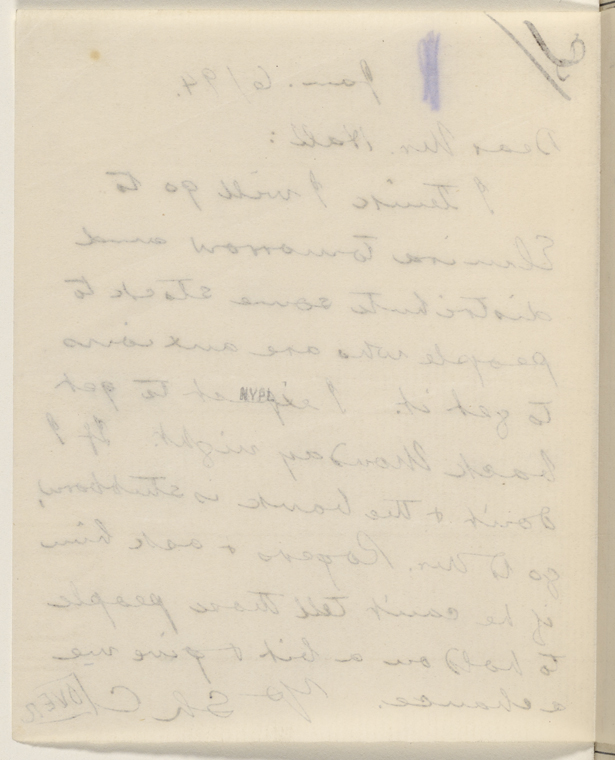 Jan. 6/94.
Dear Mr. Hall:
I think I will go to
Elmira tomorrow and
distribute some stock to
people who are anxious
to get it. I expect to get
NYPL
back Monday night. If I
don't & the bank is stubborn,
go to Mr. Rogers & ask him
if he can't tell those people
to hold on a bit & give me
a chance. Yrs SLC
OVER